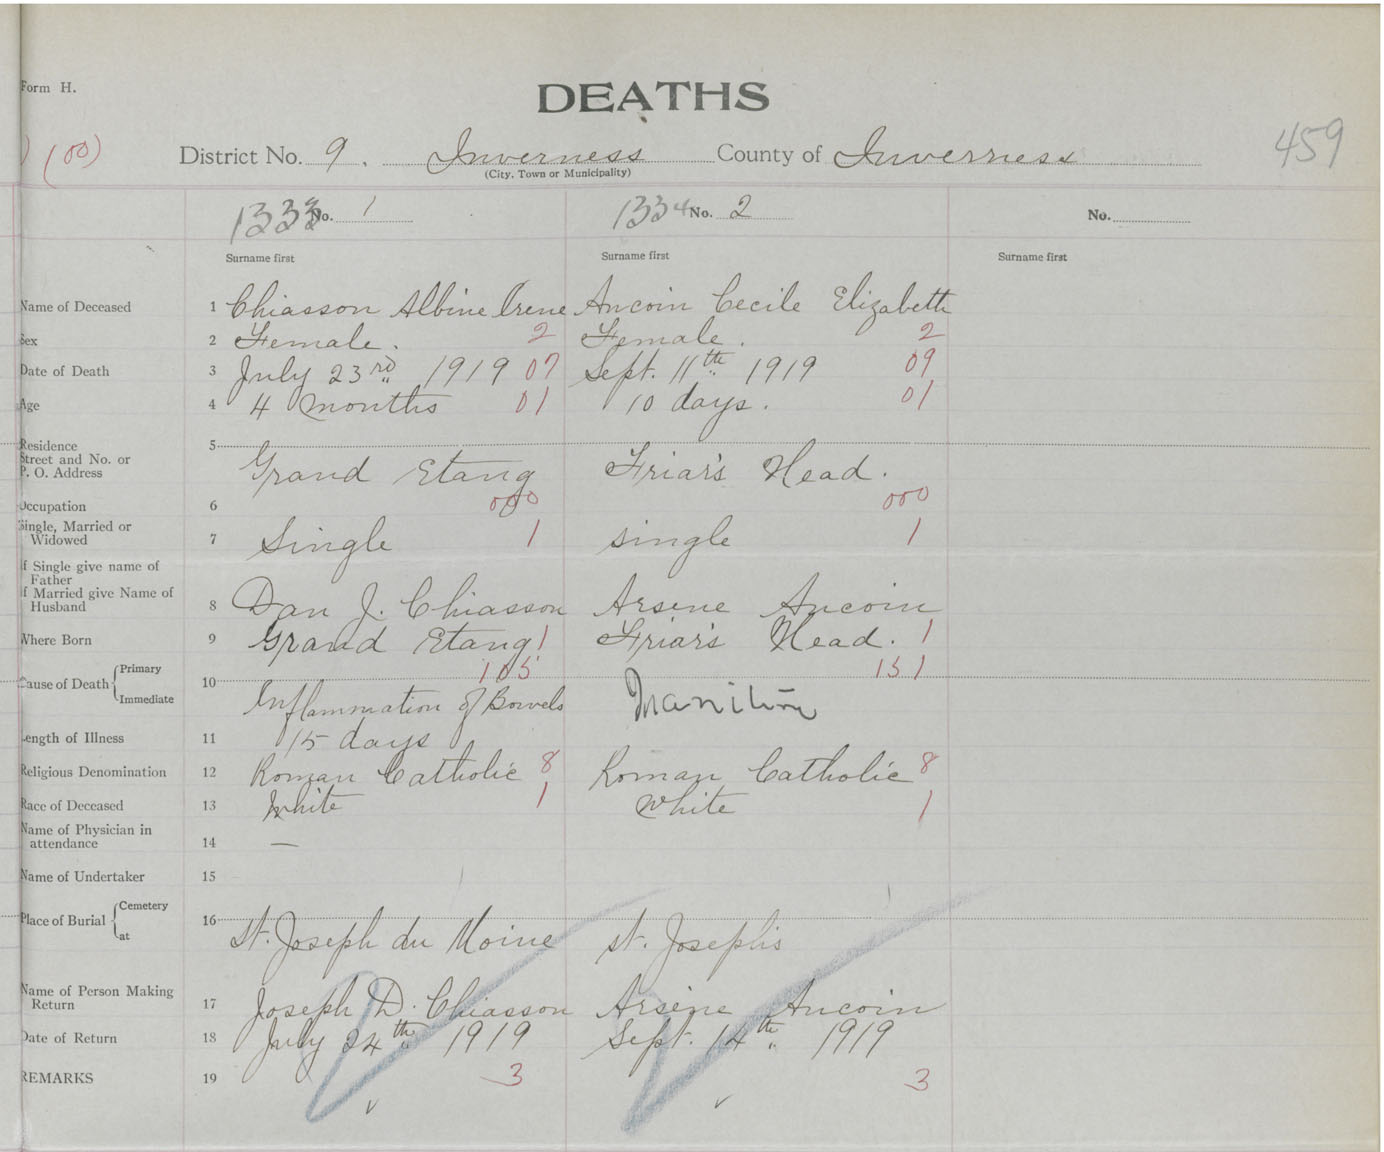 Form H.
DEATHS
459
) (00)
District No. 9. Inverness County of Inverness
(City, Town or Municipality)
1333 No. 1 1334 No. 2 No.
Surname first Surname first Surname first
Name of Deceased 1 Chiasson Albine Irene Aucoin Cecile Elizabeth
Sex 2 Female. 2 Female. 2
Date of Death 3 July 23rd 1919 07 Sept. 11th 1919 09
Age 4 4 months 01 10 days. 01
Residence 5
Street and No. or
P. O. Address Grand Etang Friar's Head.
Occupation 6 000 000
Single, Married or
Widowed 7 Single 1 single 1
If Single give name of
Father
If Married give Name of
Husband 8 Dan J. Chiasson Arsene Aucoin
Where Born 9 Grand Etang 1 Friar's Head. 1
105 151
Cause of Death Primary 10
Immediate Inflammation of Bowels Inanition
Length of Illness 11 15 days
Religious Denomination 12 Roman Catholic 8 Roman Catholic 8
Race of Deceased 13 White 1 White 1
Name of Physician in
attendance 14 —
Name of Undertaker 15
Place of Burial Cemetery 16
at St. Joseph du Moine St. Joseph's
Name of Person Making
Return 17 Joseph D. Chiasson Arsène Aucoin
Date of Return 18 July 24th 1919 Sept. 14th 1919
REMARKS 19 3 3